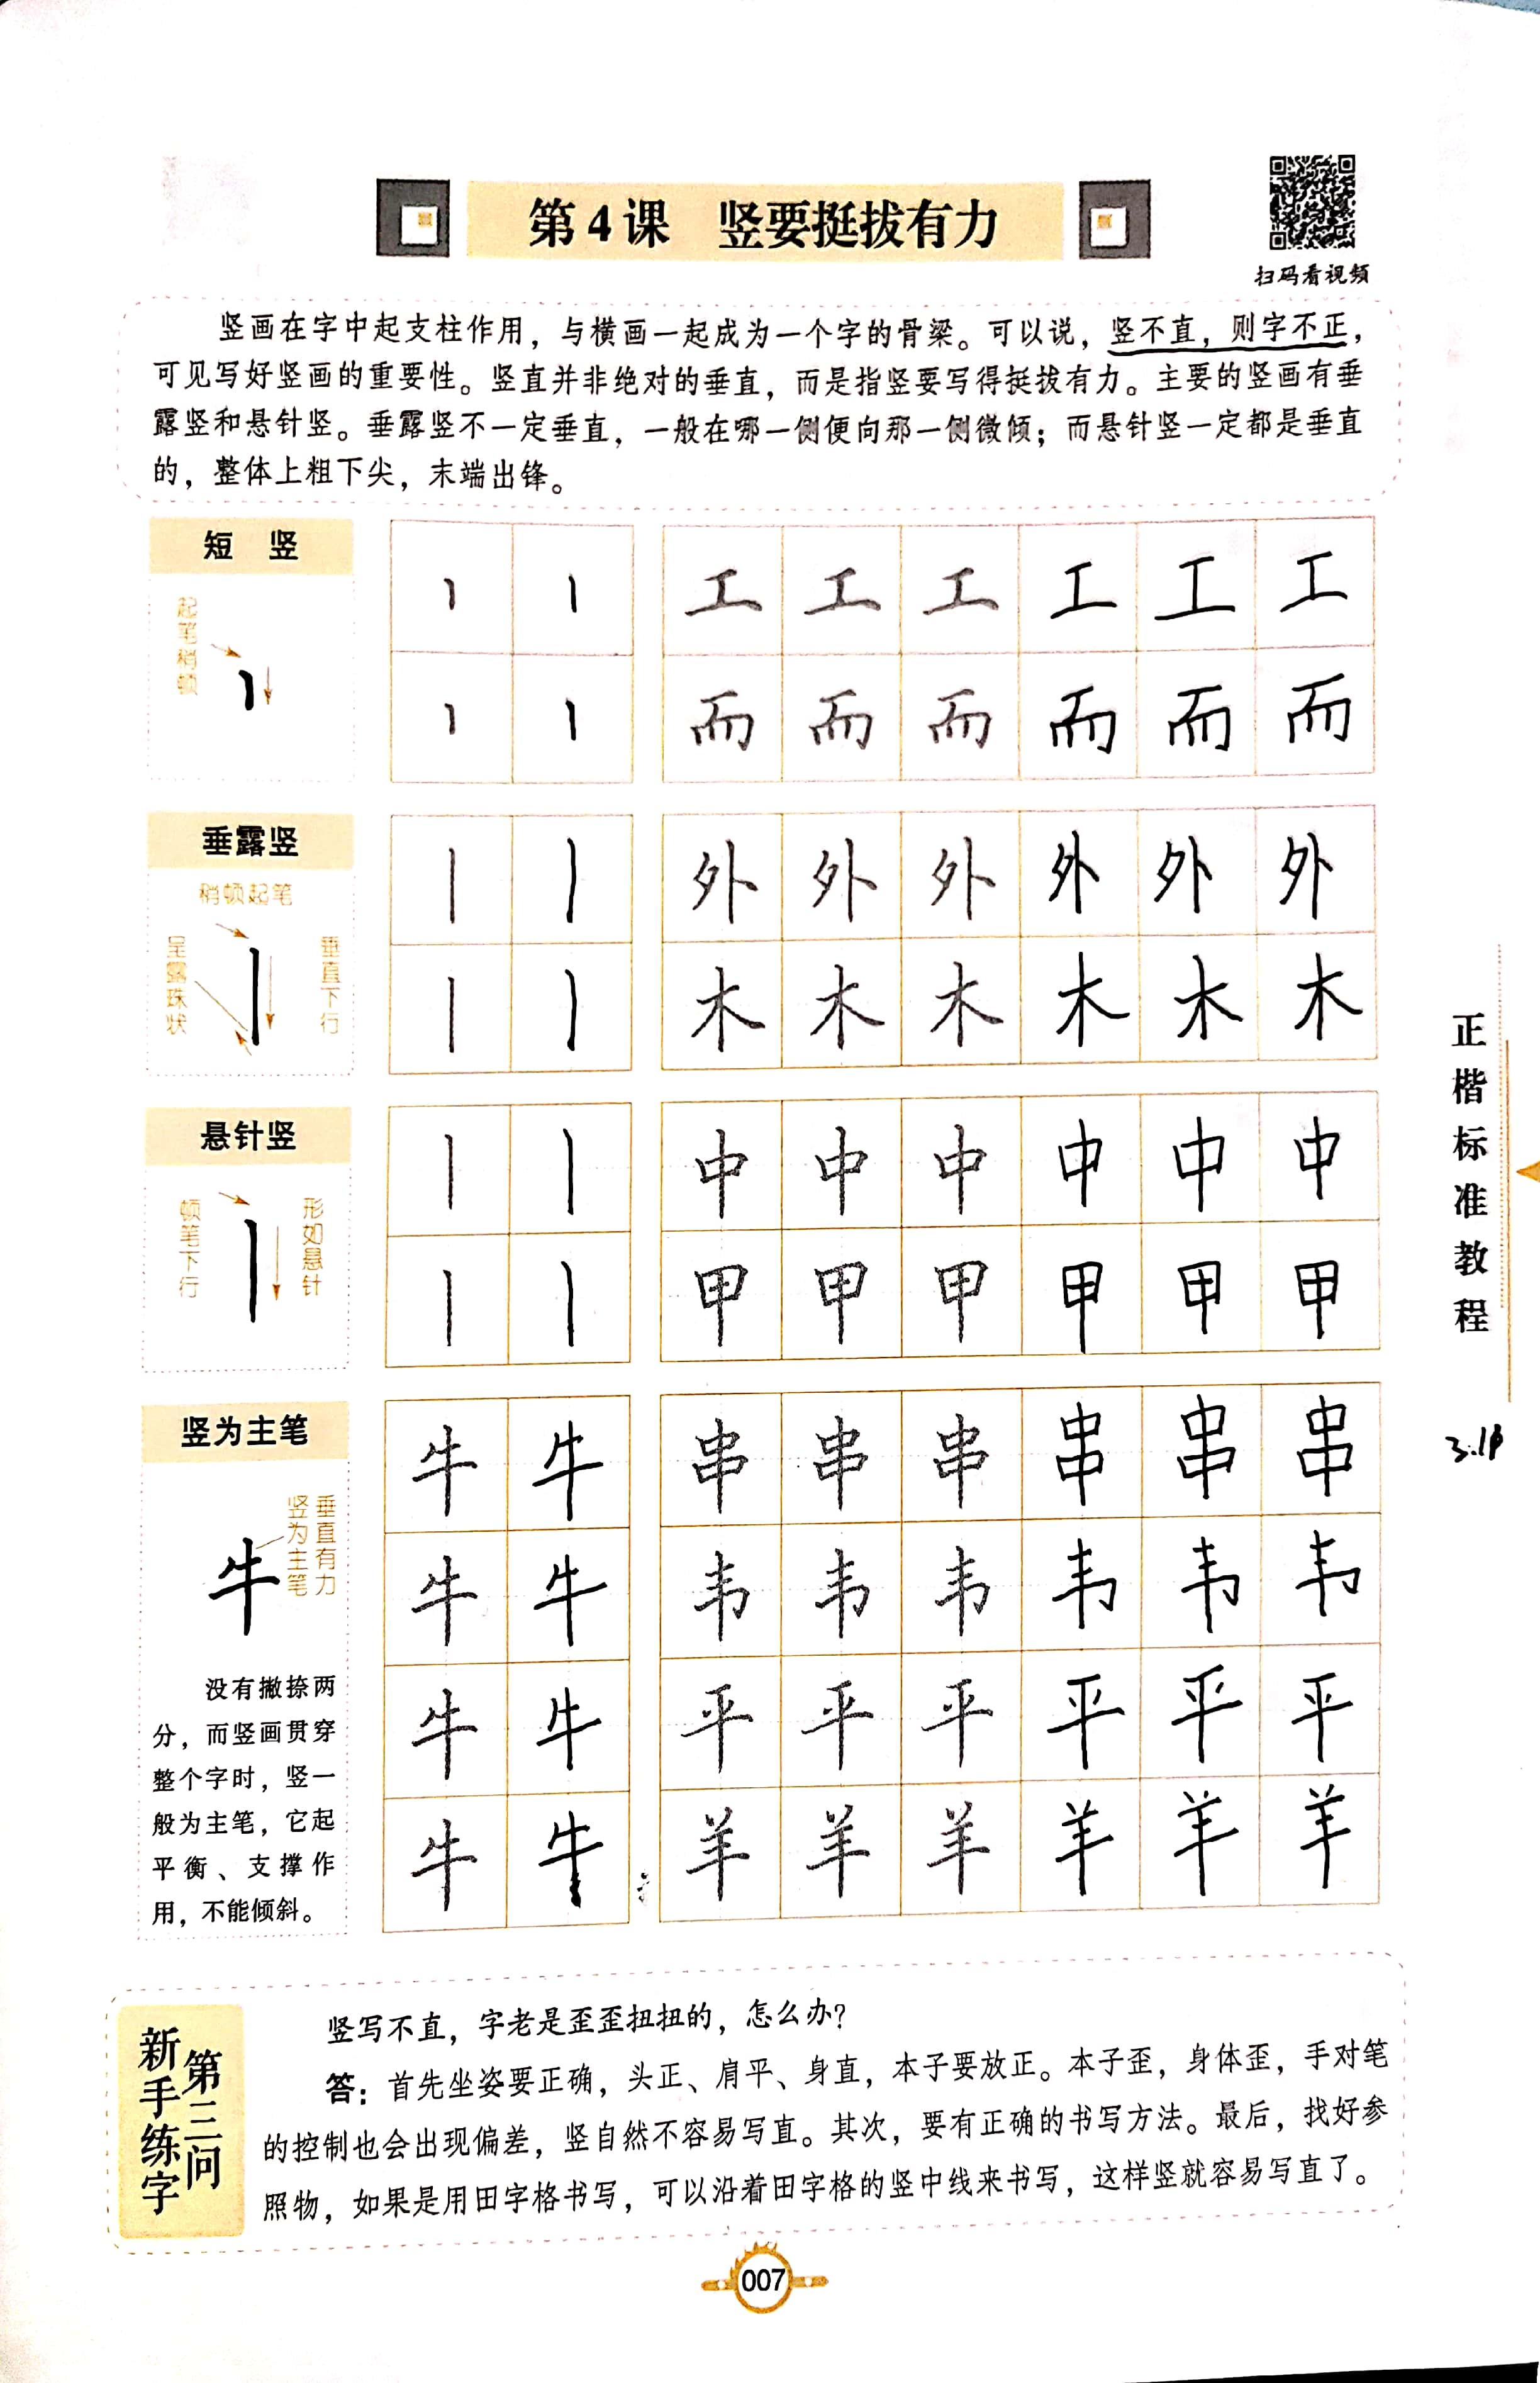 第4课 竖要挺拔有力
扫码看视频
竖画在字中起支柱作用，与横画一起成为一个字的骨梁。可以说，竖不直，则字不正，
可见写好竖画的重要性。竖直并非绝对的垂直，而是指竖要写得挺拔有力。主要的竖画有垂
露竖和悬针竖。垂露竖不一定垂直，一般在哪一侧便向那一侧微倾；而悬针竖一定都是垂直
的，整体上粗下尖，末端出锋。
短 竖
起笔稍顿
工 工 工 工 工 工
而 而 而 而 而 而
垂露竖
稍顿起笔
呈露珠状
垂直下行
外 外 外 外 外 外
木 木 木 木 木 木
悬针竖
顿笔下行
形如悬针
中 中 中 中 中 中
甲 甲 甲 甲 甲 甲
竖为主笔
垂直有力
竖为主笔
牛
没有撇捺两
分，而竖画贯穿
整个字时，竖一
般为主笔，它起
平衡、支撑作
用，不能倾斜。
牛 牛 串 串 串 串 串 串
牛 牛 韦 韦 韦 韦 韦 韦
牛 牛 平 平 平 平 平 平
牛 牛 羊 羊 羊 羊 羊 羊
正楷标准教程
新手练字
第三问
竖写不直，字老是歪歪扭扭的，怎么办？
答：首先坐姿要正确，头正、肩平、身直，本子要放正。本子歪，身体歪，手对笔
的控制也会出现偏差，竖自然不容易写直。其次，要有正确的书写方法。最后，找好参
照物，如果是用田字格书写，可以沿着田字格的竖中线来书写，这样竖就容易写直了。
007